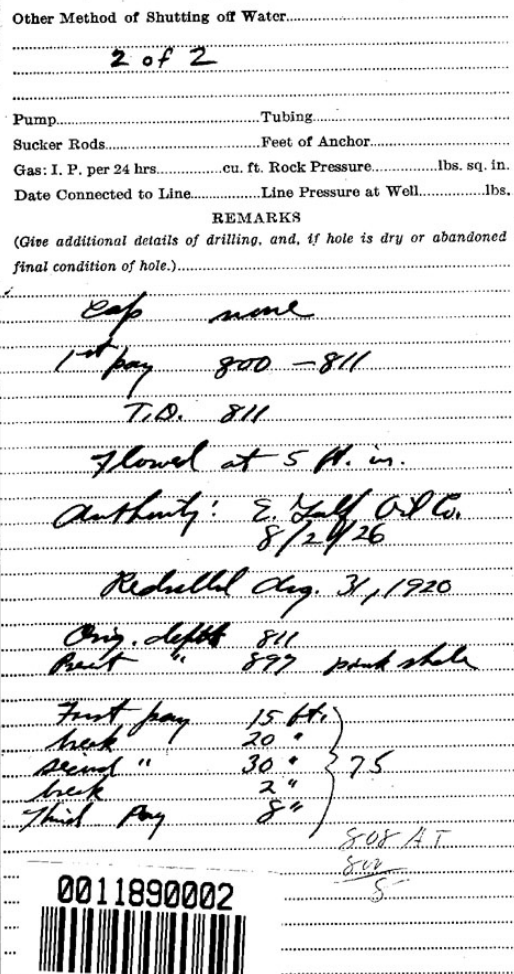 Other Method of Shutting off Water
2 of 2
Pump Tubing
Sucker Rods Feet of Anchor
Gas: I. P. per 24 hrs. cu. ft. Rock Pressure lbs. sq. in.
Date Connected to Line Line Pressure at Well lbs.
REMARKS
(Give additional details of drilling, and, if hole is dry or abandoned
final condition of hole.)
Cap none
1st pay 800 - 811
T.D. 811
Flowed at 5 ft. in.
Authority: E. Gulf Oil Co.
8/2 /26
Redrilled Aug. 31, 1920
Orig. depth 811
" 897 pink shale
First pay 15 ft.
break 20 "
second " 30 " } 75
break 2 "
Third Pay 8 "
808 AT
800
8
0011890002